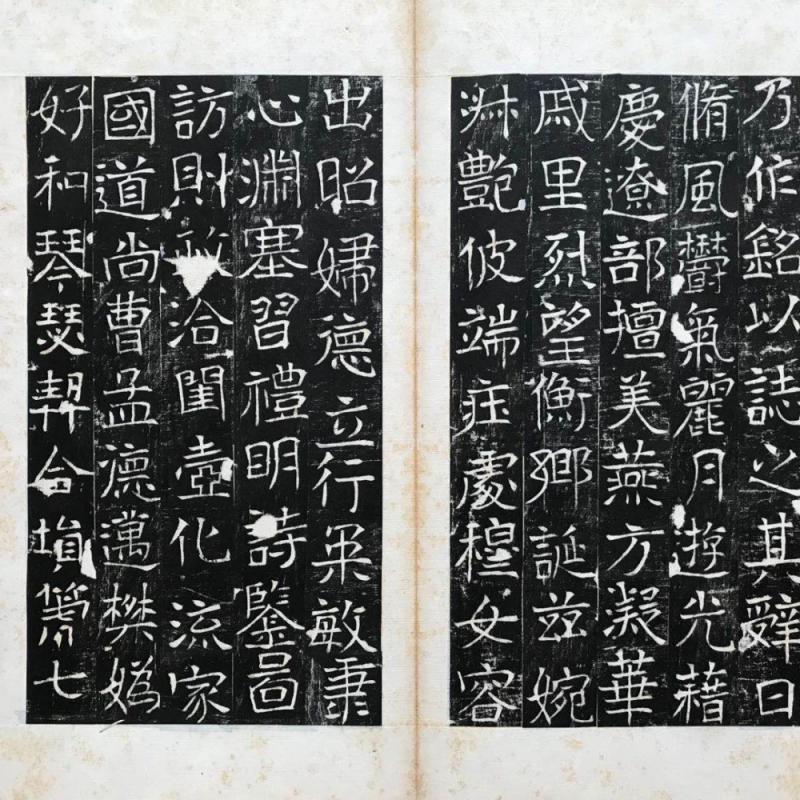 乃作銘以誌之其辭曰
脩風鬱氣麗月遊光藉
慶遼部擅美燕方凝華
戚里烈望衡鄉誕茲婉
淑艷彼端莊處穆女容
出昭婦德立行英敏秉
心淵塞習禮明詩鑒啚
訪則政洽閨壼化流家
國道尚曹孟德邁樊嬀
好和琴瑟契合塤篪七